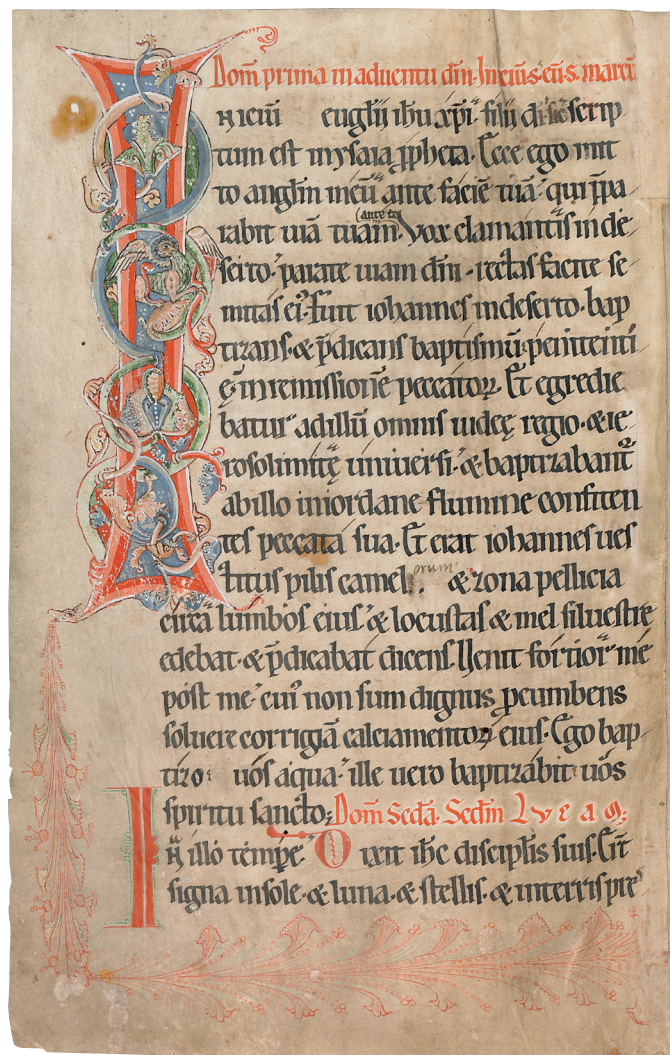 Dom̄ prima in aduentu dn̄i. Iniciū s. eu͞s. marcū
Iniciū euḡlij ih̄u xp̄i filij dī sic scrip
tum est in ysaia ꝓpheta. Ecce ego mit
to angl̄m meū ante faciē tuā. qui p̄pa
rabit uiā tuam ante te. Vox clamantis in de
serto. parate uiam dn̄i. rectas facite se
mitas ei᾿. Fuit iohannes in deserto. bap
tizans. & p̄dicans baptismū penitenti
ę. in remissionē peccatoꝝ. Et egredie
batur ad illū omnis iudeę regio. & ie
rosolimitę uniuersi. & baptizabant᾿
ab illo in iordane flumine confiten
tes peccata sua. Et erat iohannes ues
titus pilis camelorum & zona pellicia
circa lumbos eius. & locustas & mel siluestre
edebat. & p̄dicabat dicens. Uenit fortior me
post me. cui᾿ non sum dignus ꝓcumbens
soluere corrigiā calciamentoꝝ eius. Ego bap
tizo uos aqua. ille uero baptizabit uos
spiritu sancto. Dom̄ Scd̄a. Scd̄m Lucaꝫ
In illo tempr̄e. Dixit ih̄c discipl̄is suis. Er̄t
signa in sole. & luna. & stellis. & in terris pre